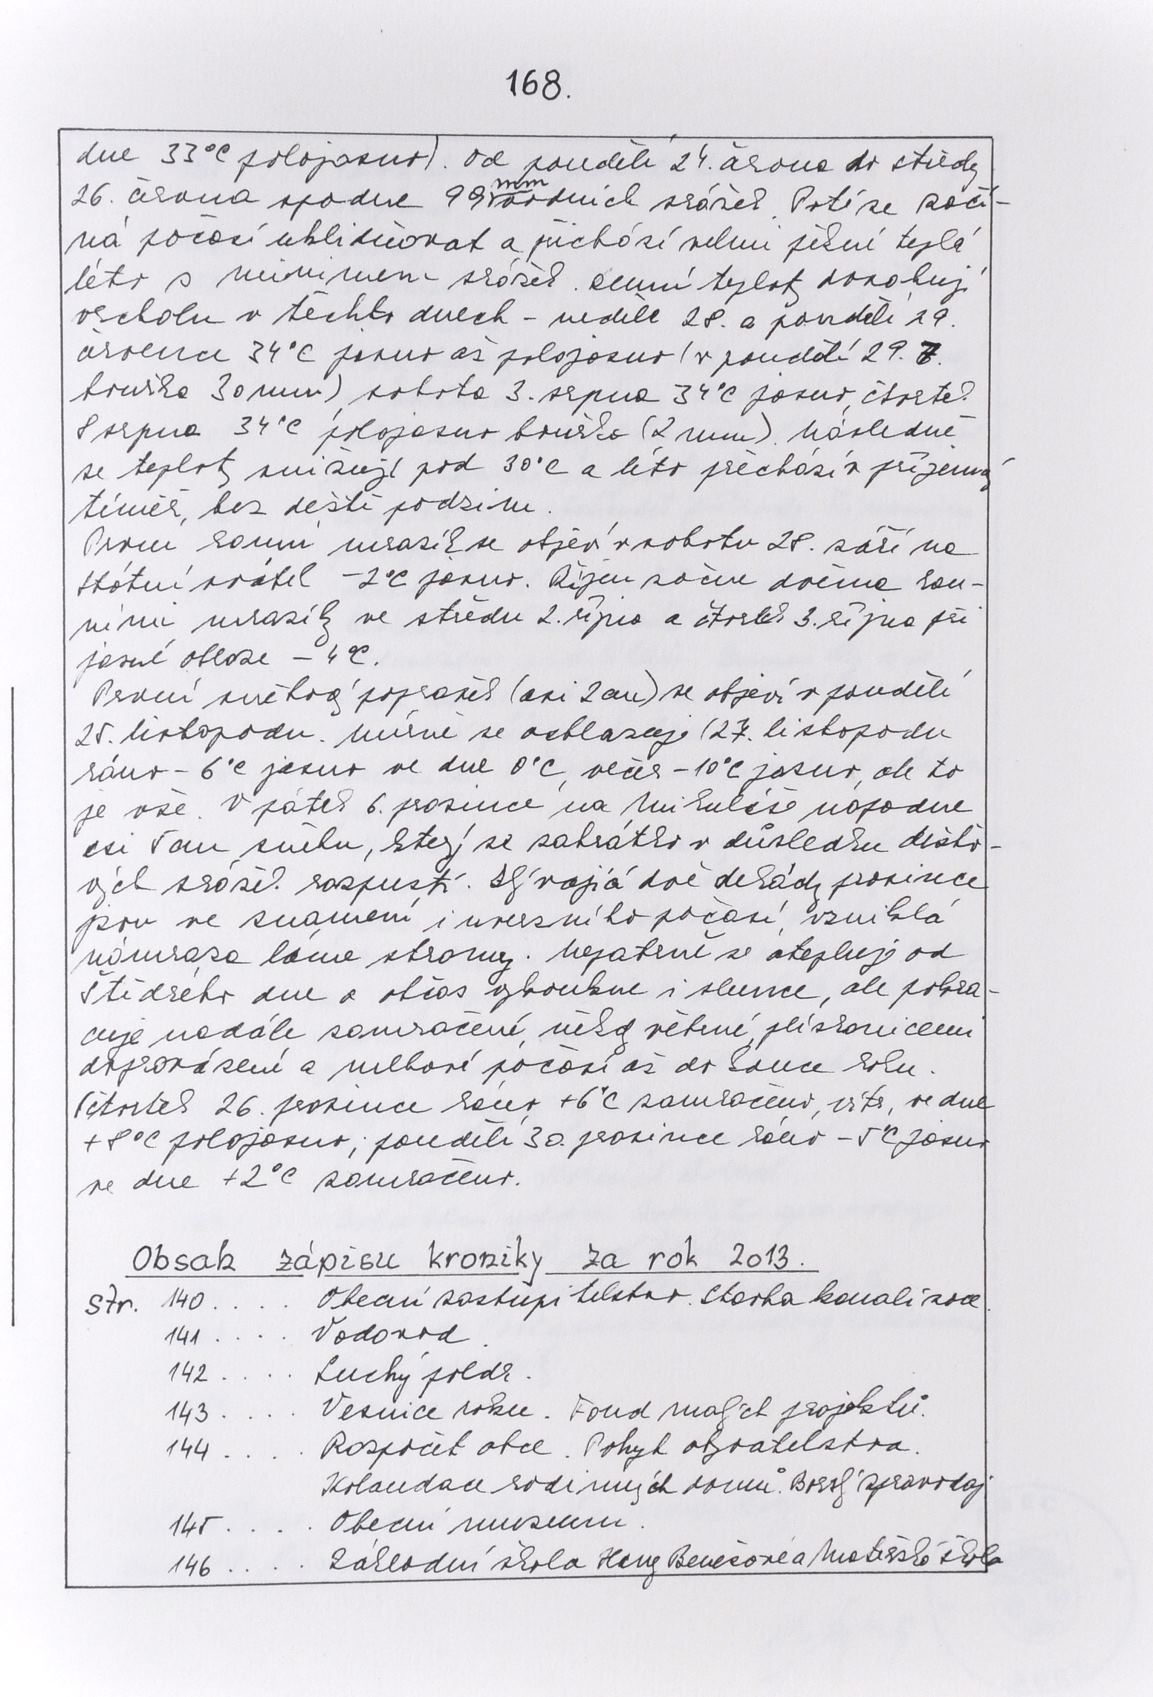 168.
dne 33°C polojasno). Od pondělí 24. června do středy
26. června spadne 99 mm vodních srážek. Poté se začí-
ná počasí uklidňovat a přichází velmi pěkné teplé
léto s minimem srážek. Denní teploty dosahují
vrcholu v těchto dnech - neděle 28. a pondělí 29.
července 34°C jasno až polojasno (v pondělí 29. 7.
bouřka 30 mm), sobota 3. srpna 34°C jasno, čtvrtek
8 srpna 34°C polojasno bouřka (2 mm). Následně
se teploty snižují pod 30°C a léto přechází v příjemný
téměř, bez deště podzim.
První ranní mrazík se objeví v sobotu 28. září na
státní svátek -2°C jasno. Říjen začne dvěma ran-
ními mrazíky ve středu 2. října a čtvrtek 3. října při
jasné obloze - 4°C.
První sněhový poprašek (asi 2 cm) se objeví v pondělí
25. listopadu. Mírně se ochlazuje (27. listopadu
ráno - 6°C jasno ve dne 0°C, večer -10°C jasno, ale to
je vše. V pátek 6. prosince, na Mikuláše napadne
asi 5 cm sněhu, který se zakrátko v důsledku dešťo-
vých srážek rozpustí. Zbývající dvě dekády prosince
jsou ve znamení inverzního počasí, vzniklá
námraza láme stromy. Nepatrně se otepluje od
Štědrého dne a občas vykoukne i slunce, ale pokra-
čuje nadále zamračené, někdy větrné, plískanicemi
doprovázené a mlhavé počasí až do konce roku.
(Čtvrtek 26. prosince ráno +6°C zamračeno, vítr, ve dne
+8°C polojasno; pondělí 30. prosince ráno -5°C jasno
ve dne +2°C zamračeno.
Obsah zápisu kroniky za rok 2013.
Str. 140 . . . . Obecní zastupitelstvo. Stavba kanalizace.
141 . . . . Vodovod.
142 . . . . Suchý poldr.
143 . . . . Vesnice roku. Fond malých projektů.
144 . . . . Rozpočet obce. Pohyb obyvatelstva.
Kolaudace rodinných domů. Borský zpravodaj
145 . . . . Obecní muzeum.
146 . . . . Základní škola Hany Benešové a Mateřská škola